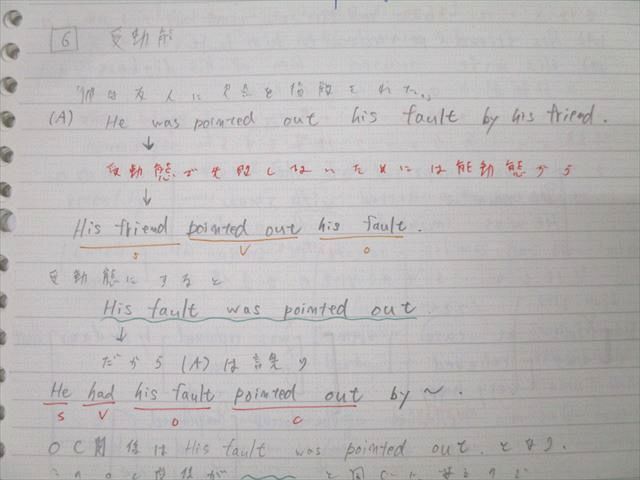 6 受動態
彼は友人に欠点を指摘された。
(A) He was pointed out his fault by his friend.
↓
受動態で失敗しないためには能動態から
↓
His friend pointed out his fault.
S V O
受動態にすると
His fault was pointed out.
↓
だから (A)は誤り
He had his fault pointed out by ~.
S V O C
OC関係は His fault was pointed out. となる。